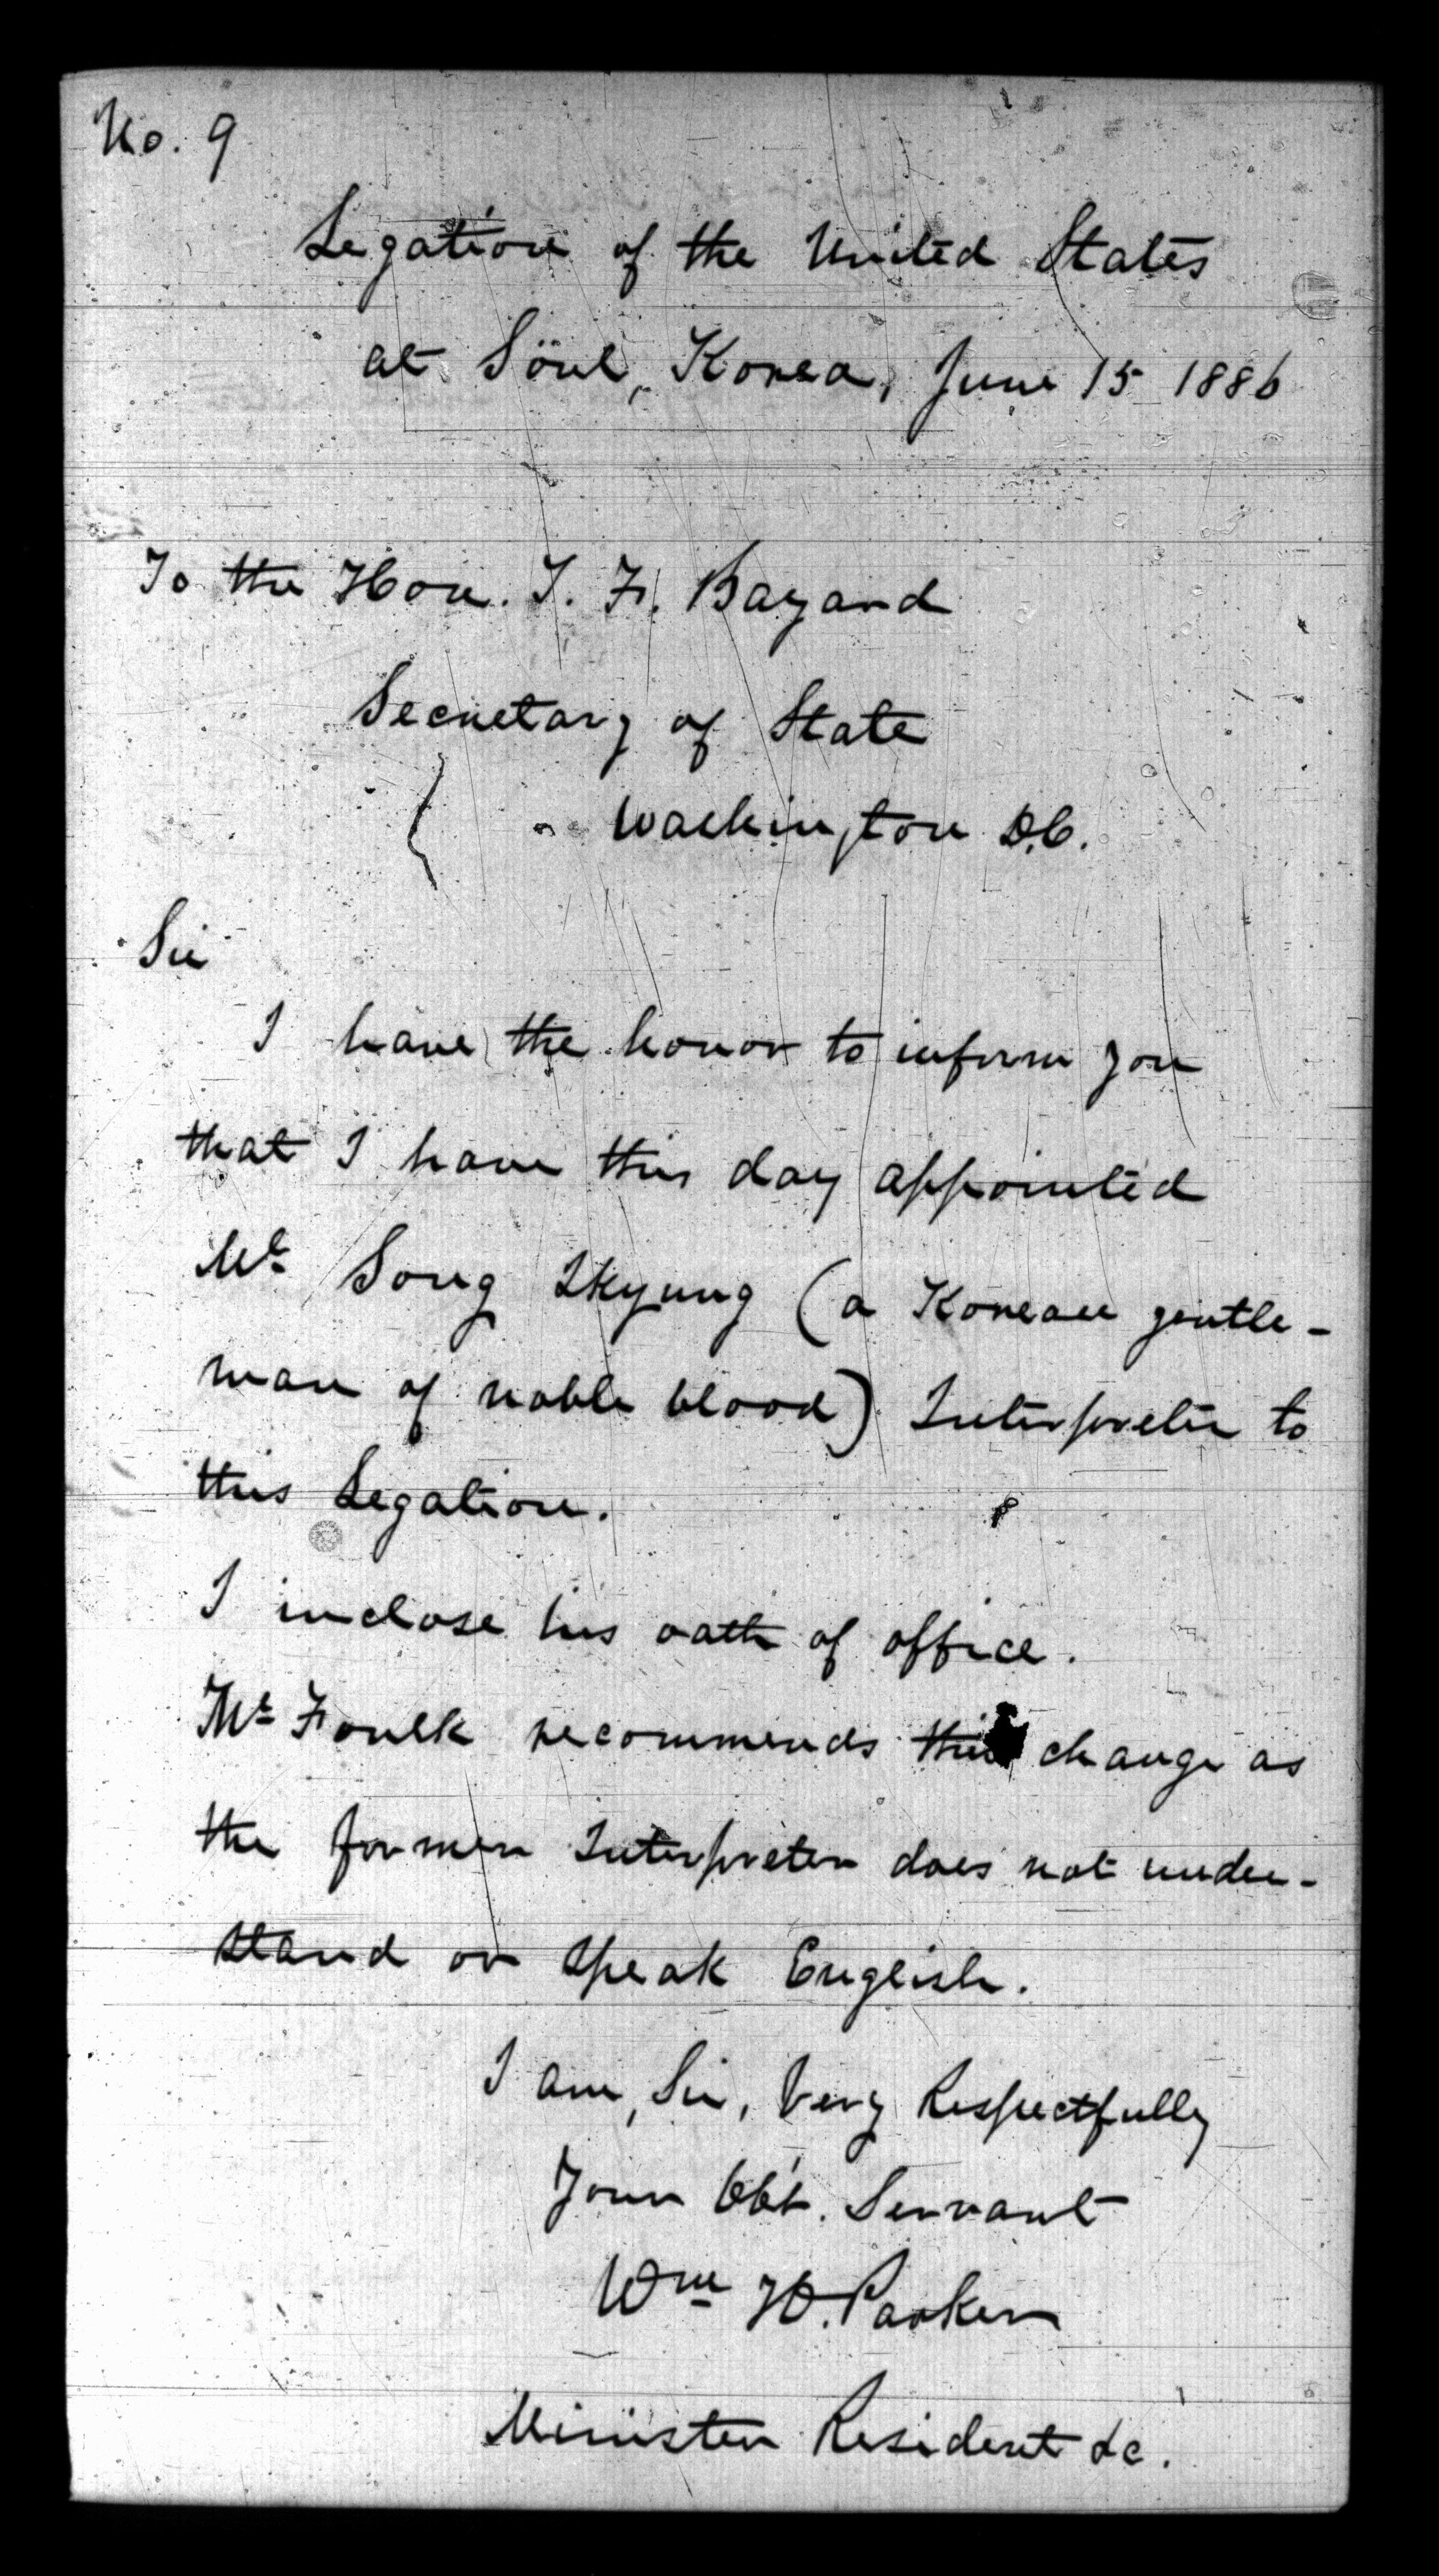 No. 9
Legation of the United States
at Söul, Korea, June 15 1886
To the Hon. T. F. Bayard
Secretary of State
Washington D.C.
Sir
I have the honor to inform you
that I have this day appointed
Mr Song Ikyung (a Korean gentle-
man of noble blood) Interpreter to
this Legation.
I inclose his oath of office.
Mr Foulk recommends this change as
the former Interpreter does not under-
stand or speak English.
I am, Sir, Very Respectfully
Your Obt. Servant
Wm H. Parker
Minister Resident &c.